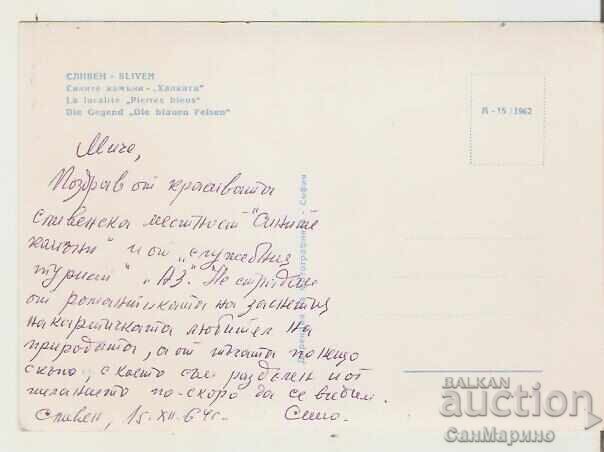 СЛИВЕН - SLIVEN
Сините камъни - „Халката"
La localite „Pierres bleus"
Die Gegend „Die blauen Felsen"
А - 15 / 1962
София
Миче,
Поздрав от красивата
сливенска местност "Сините
камъни" и от „служебния
турист" „Аз". Не страдам
от романтиката на заснетия
на картичката любител на
природата, а от тъгата по нещо
скъпо, с което съм разделен и от
желанието по-скоро да се видим.
Сливен, 15.XII.64г.
БАЛКАН
auction
СанМарино